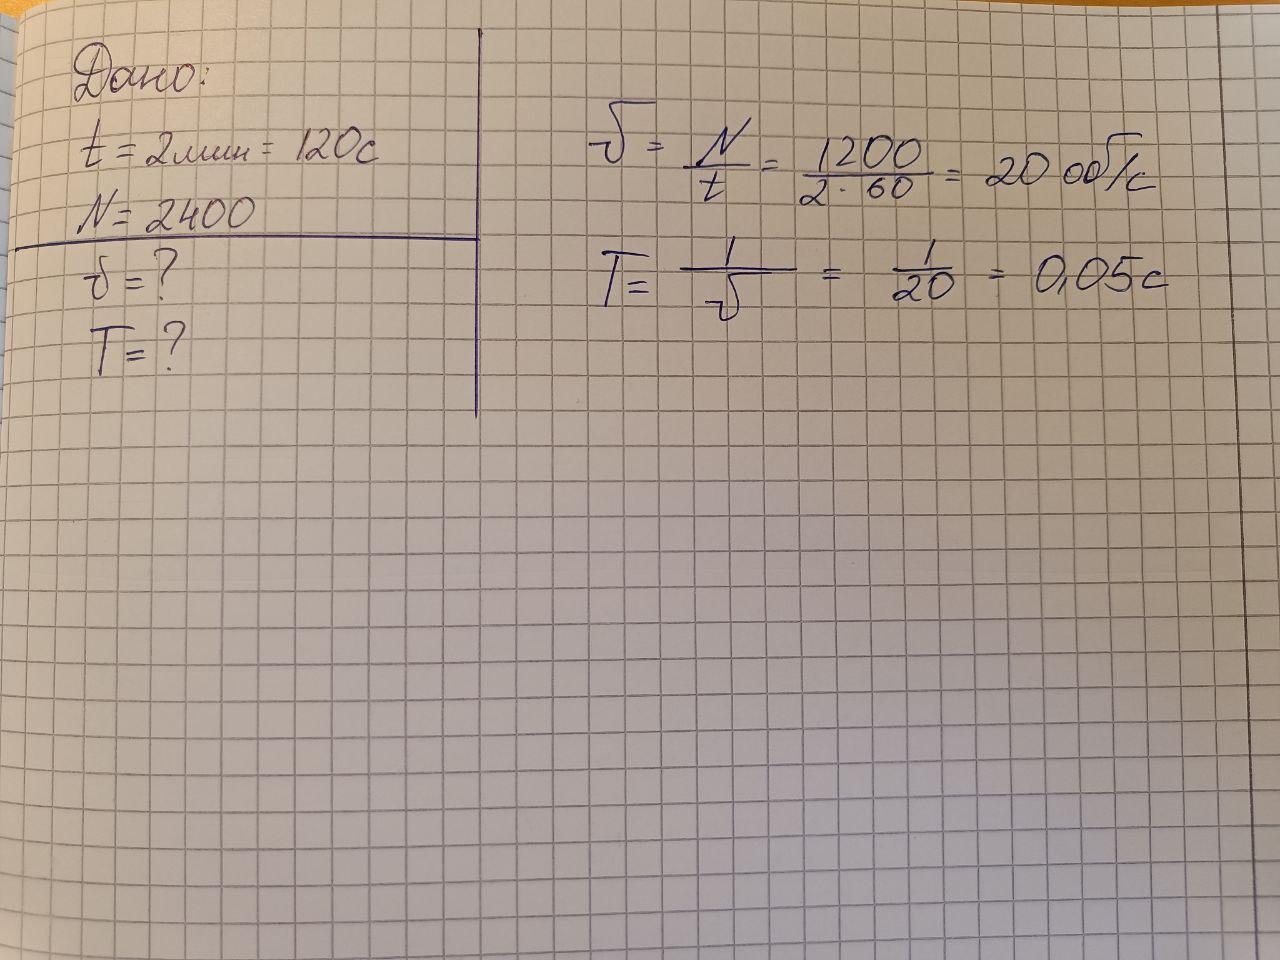 Дано:
t = 2мин = 120с
N = 2400
υ = ?
T = ?
υ = N/t = 1200/(2·60) = 20 об/с
T = 1/υ = 1/20 = 0,05с